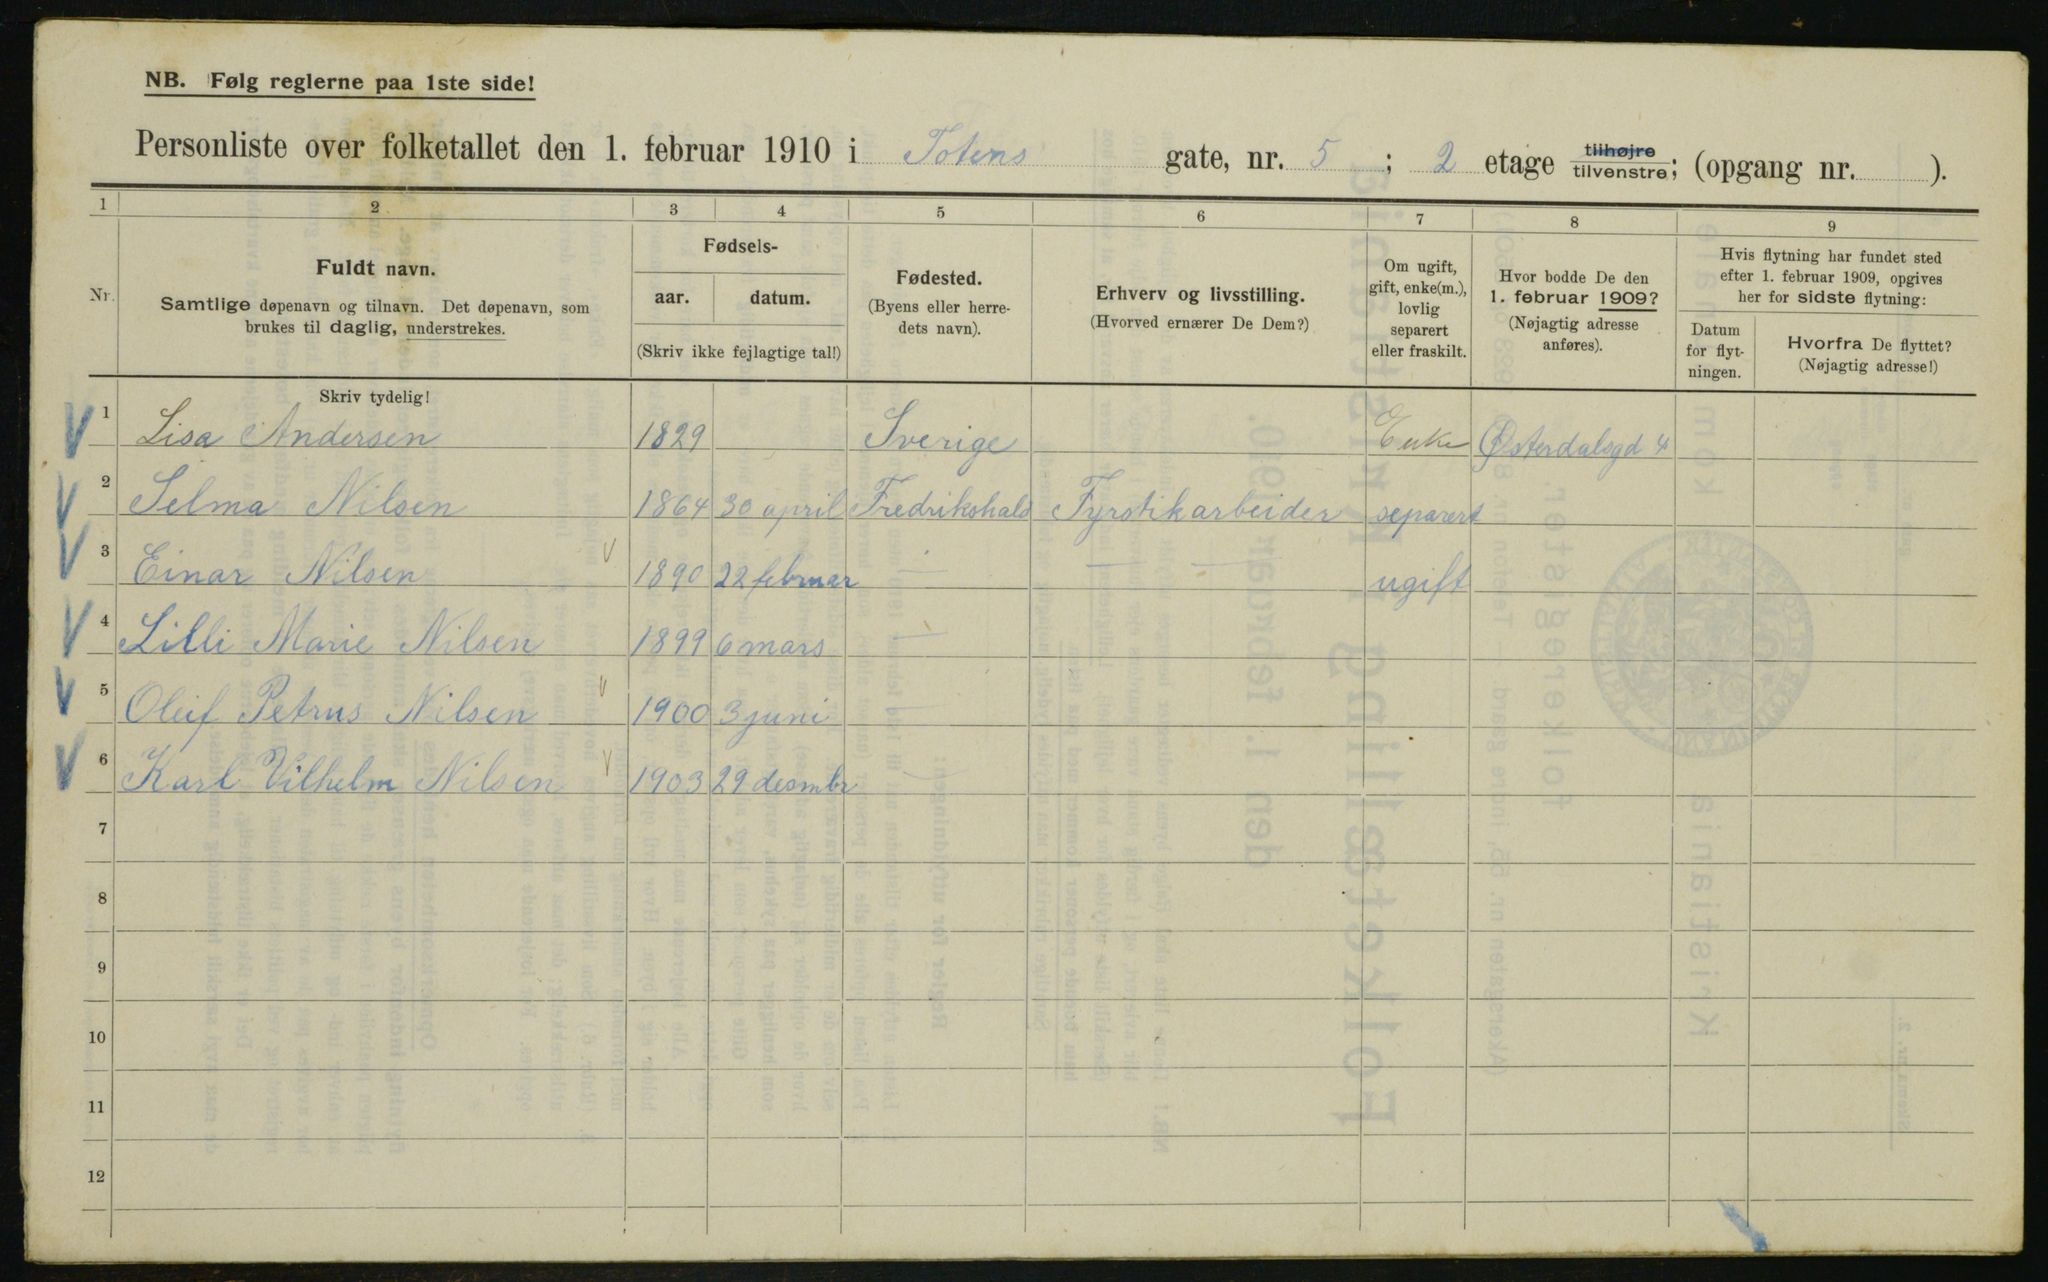 NB. Følg reglerne paa 1ste side!
Personliste over folketallet den 1. februar 1910 i Totens gate, nr. 5 ; 2 etage tilhøjre tilvenstre; (opgang nr. ).
1 2 3 4 5 6 7 8 9
Nr.
Fuldt navn.
Samtlige døpenavn og tilnavn. Det døpenavn, som
brukes til daglig, understrekes.
Skriv tydelig!
Fødsels-
aar. datum.
(Skriv ikke fejlagtige tal!)
Fødested.
(Byens eller herre-
dets navn).
Erhverv og livsstilling.
(Hvorved ernærer De Dem?)
Om ugift,
gift, enke(m.),
lovlig
separert
eller fraskilt.
Hvor bodde De den
1. februar 1909?
(Nøjagtig adresse
anføres).
Hvis flytning har fundet sted
efter 1. februar 1909, opgives
her for sidste flytning:
Datum
for flyt-
ningen.
Hvorfra De flyttet?
(Nøjagtig adresse!)
1 Lisa Andersen 1829 Sverige Enke Østerdalsgd 4
2 Selma Nilsen 1864 30 april Fredrikshald Fyrstikarbeider separert
3 Einar Nilsen 1890 22 februar — — — ugift
4 Lilli Marie Nilsen 1899 6 mars —
5 Oleif Petrus Nilsen 1900 3 juni —
6 Karl Vilhelm Nilsen 1903 29 desmbr —
7
8
9
10
11
12